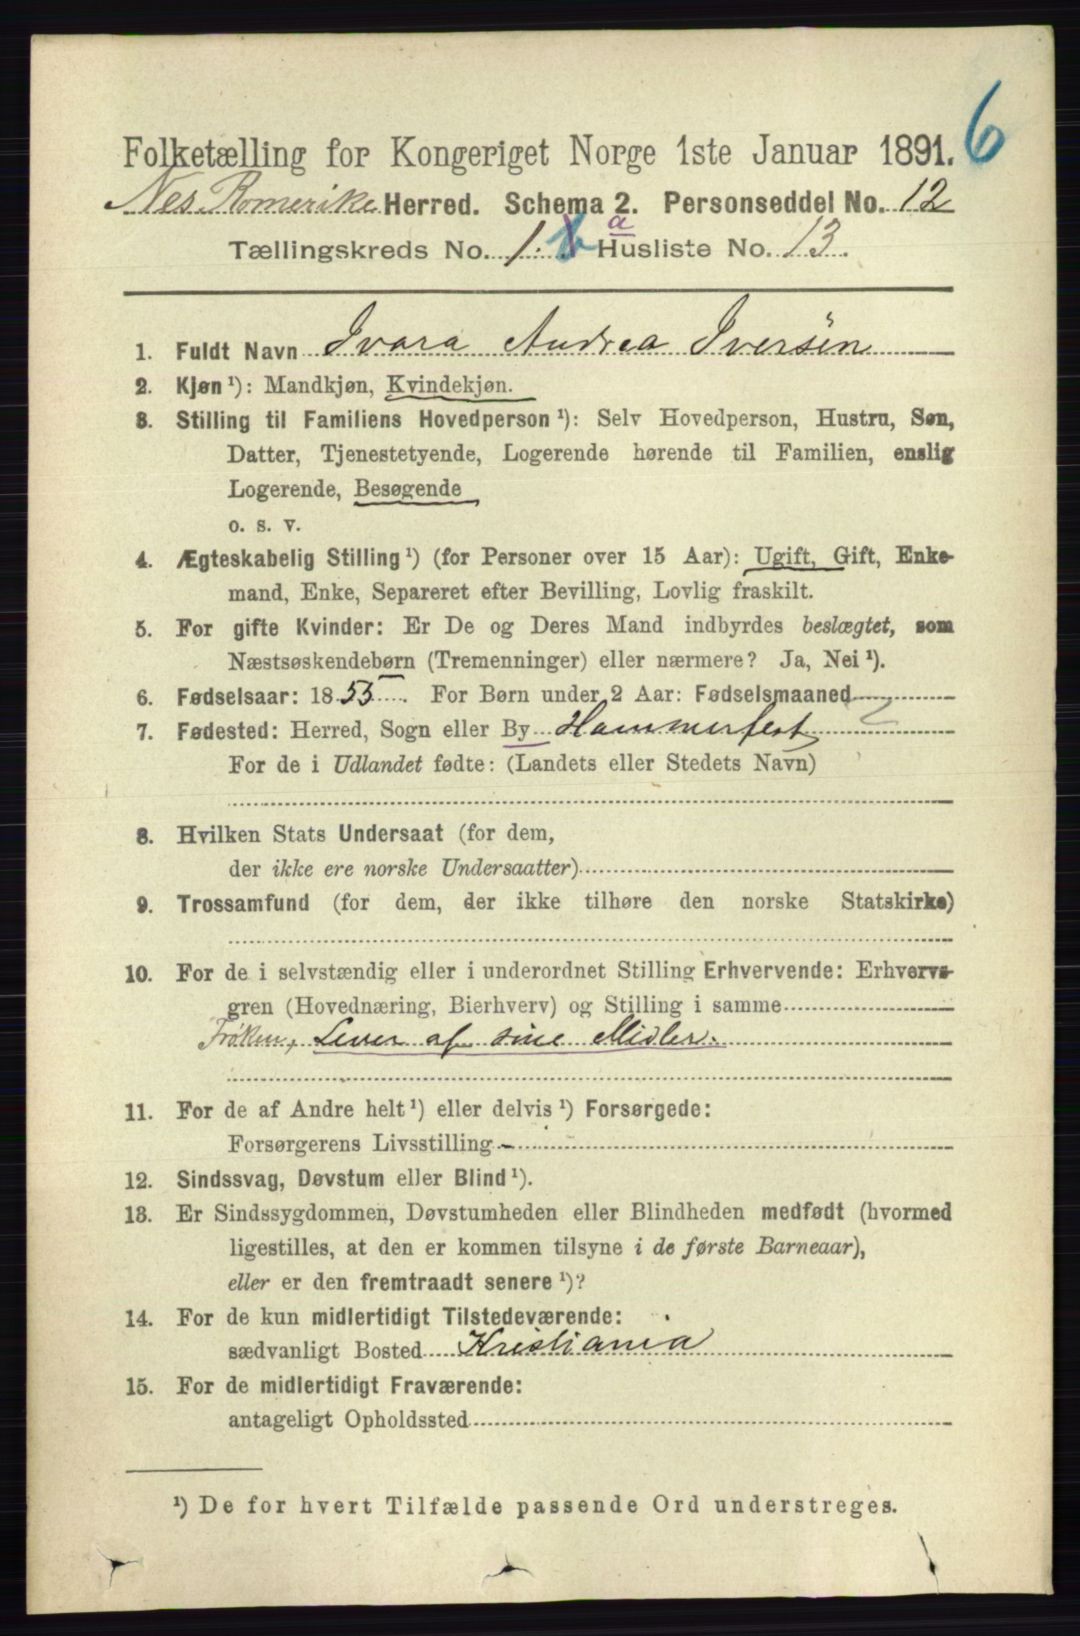 6
Folketælling for Kongeriget Norge 1ste Januar 1891.
Nes Romerike Herred. Schema 2. Personseddel No. 12
Tællingskreds No. 1. a Husliste No. 13.
1. Fuldt Navn Ivara Andrea Iversen
2. Kjøn ¹): Mandkjøn, Kvindekjøn.
3. Stilling til Familiens Hovedperson ¹): Selv Hovedperson, Hustru, Søn,
Datter, Tjenestetyende, Logerende hørende til Familien, enslig
Logerende, Besøgende
o. s. v.
4. Ægteskabelig Stilling ¹) (for Personer over 15 Aar): Ugift, Gift, Enke-
mand, Enke, Separeret efter Bevilling, Lovlig fraskilt.
5. For gifte Kvinder: Er De og Deres Mand indbyrdes beslægtet, som
Næstsøskendebørn (Tremenninger) eller nærmere? Ja, Nei ¹).
6. Fødselsaar: 1855. For Børn under 2 Aar: Fødselsmaaned
7. Fødested: Herred, Sogn eller By Hammerfest
For de i Udlandet fødte: (Landets eller Stedets Navn)
8. Hvilken Stats Undersaat (for dem,
der ikke ere norske Undersaatter)
9. Trossamfund (for dem, der ikke tilhøre den norske Statskirke)
10. For de i selvstændig eller i underordnet Stilling Erhvervende: Erhvervs-
gren (Hovednæring, Bierhverv) og Stilling i samme
Frøken, Lever af sine Midler.
11. For de af Andre helt ¹) eller delvis ¹) Forsørgede:
Forsørgerens Livsstilling -
12. Sindssvag, Døvstum eller Blind ¹).
13. Er Sindssygdommen, Døvstumheden eller Blindheden medfødt (hvormed
ligestilles, at den er kommen tilsyne i de første Barneaar),
eller er den fremtraadt senere ¹)?
14. For de kun midlertidigt Tilstedeværende:
sædvanligt Bosted Kristiania
15. For de midlertidigt Fraværende:
antageligt Opholdssted
¹) De for hvert Tilfælde passende Ord understreges.